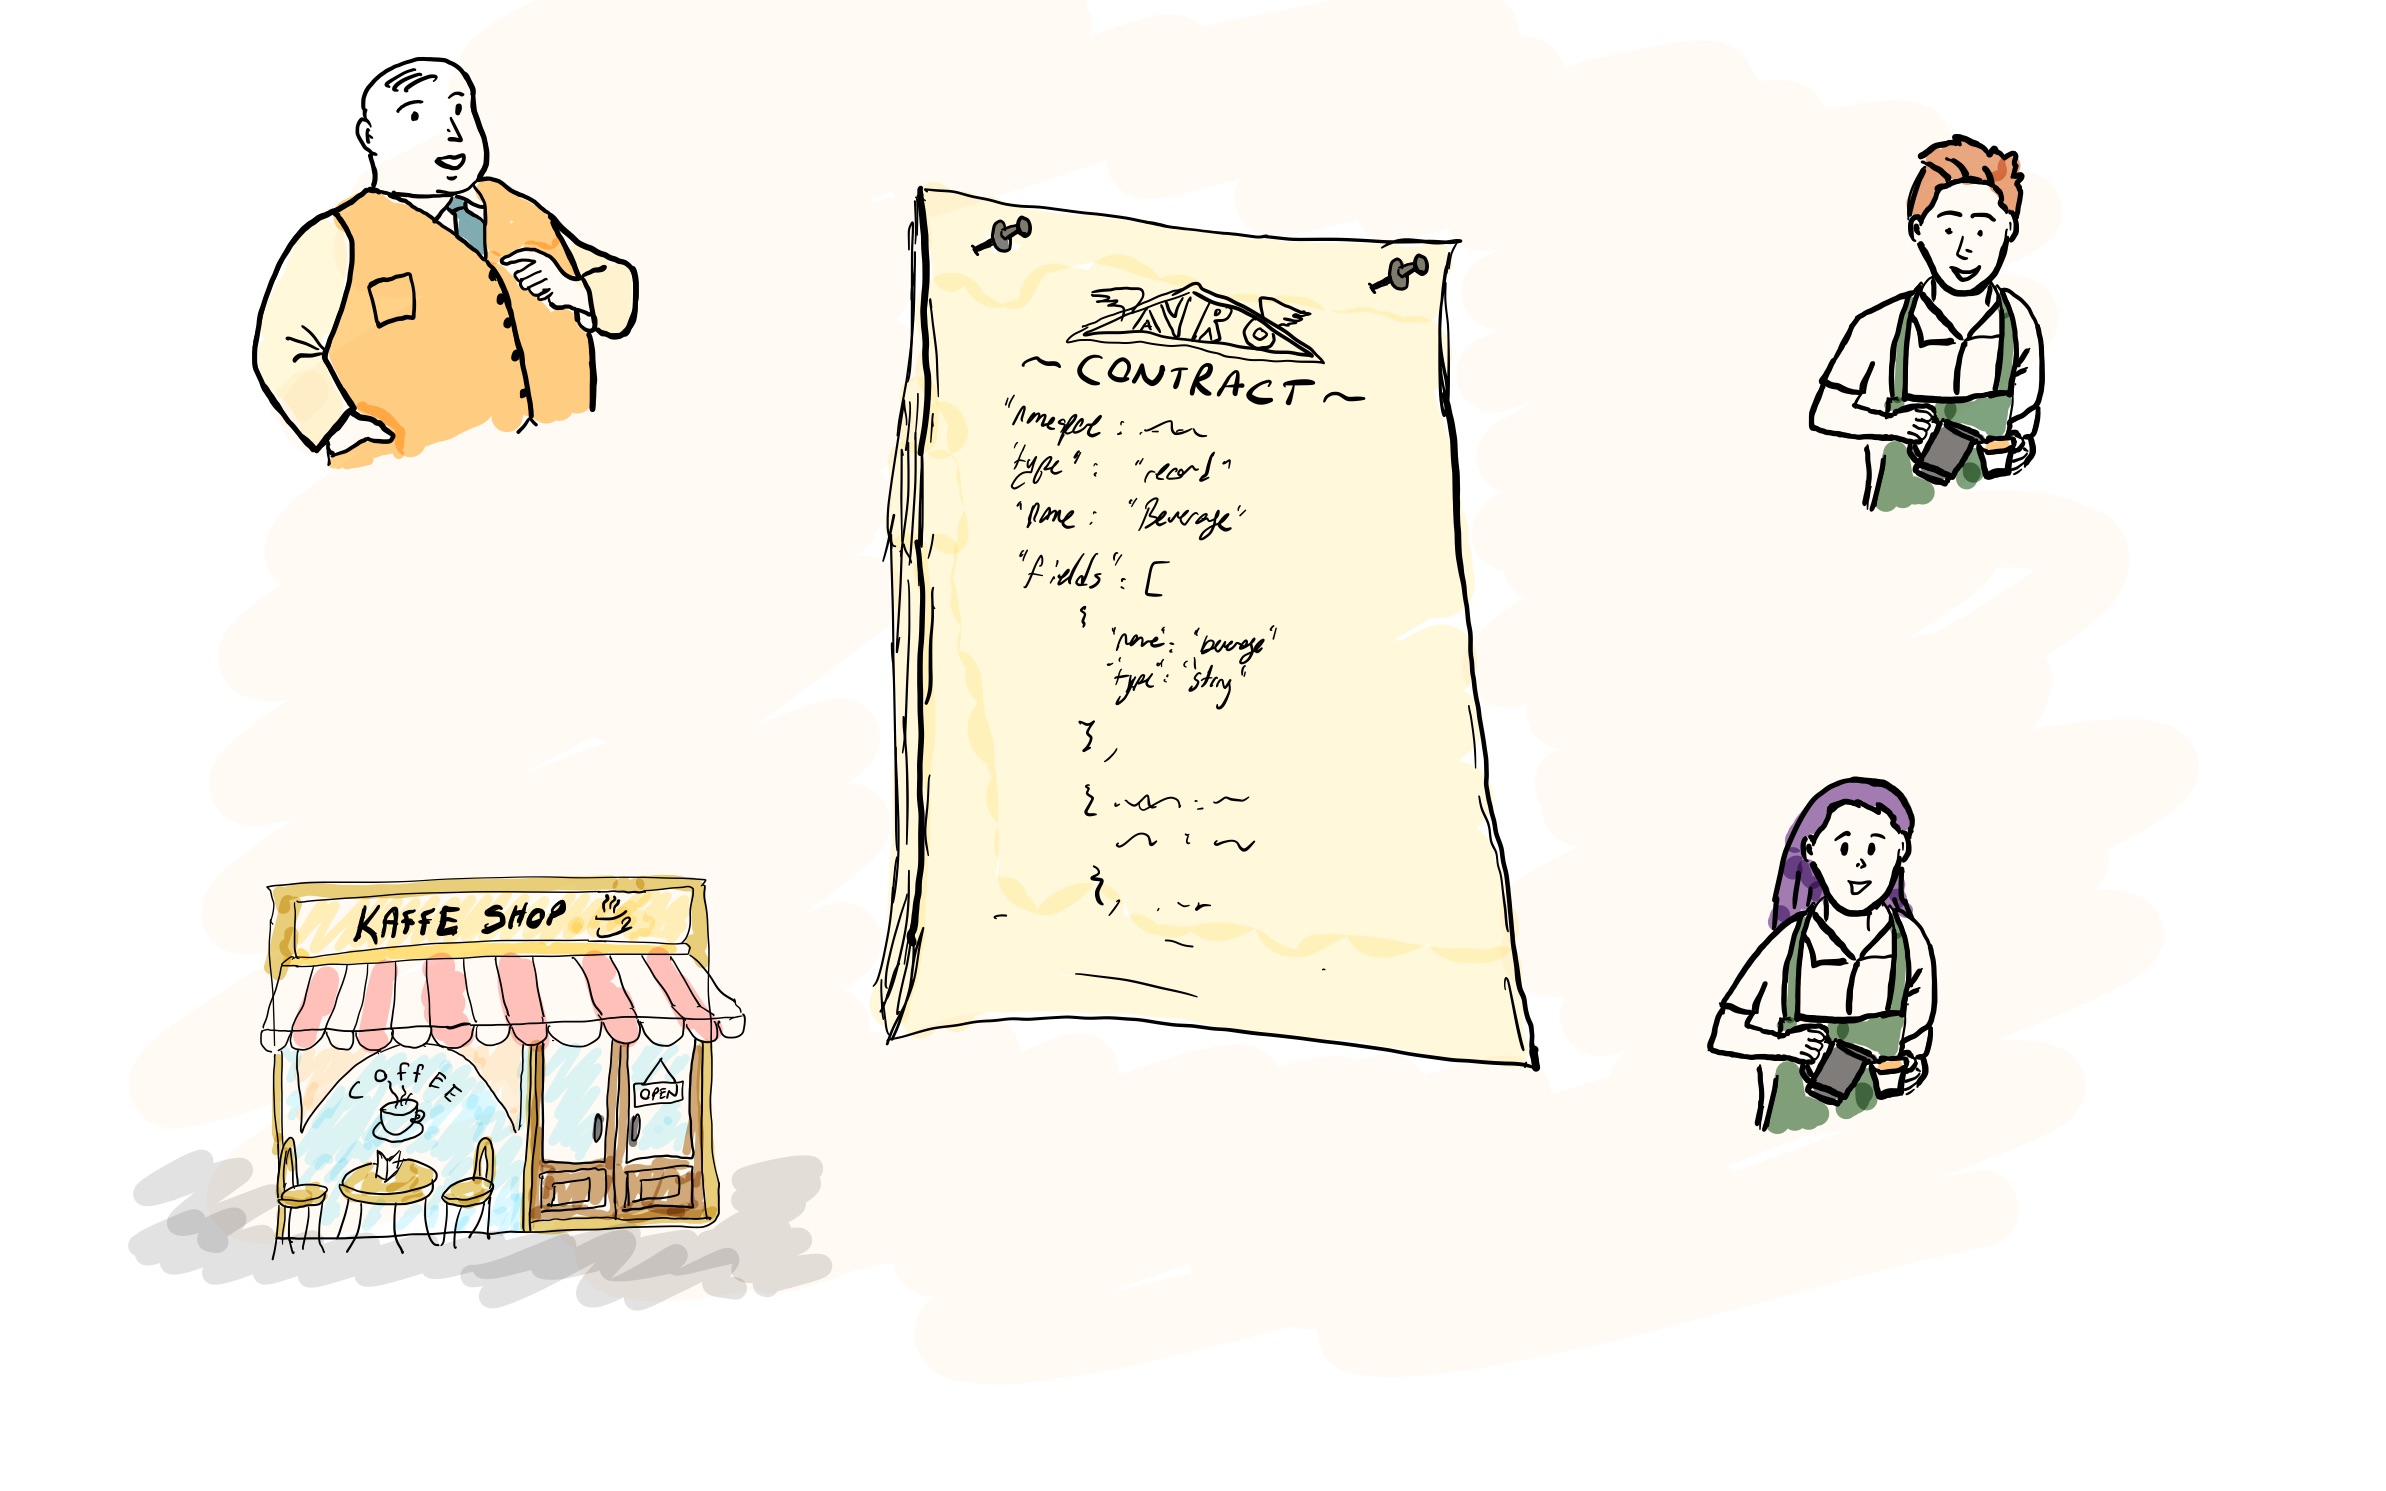 AVRO
~ CONTRACT ~
"type" : "record"
"name : "Beverage"
"fields" : [
{
"name" : "beverage"
"type" : "string"
},
{
}
KAFFE SHOP
COFFEE
OPEN